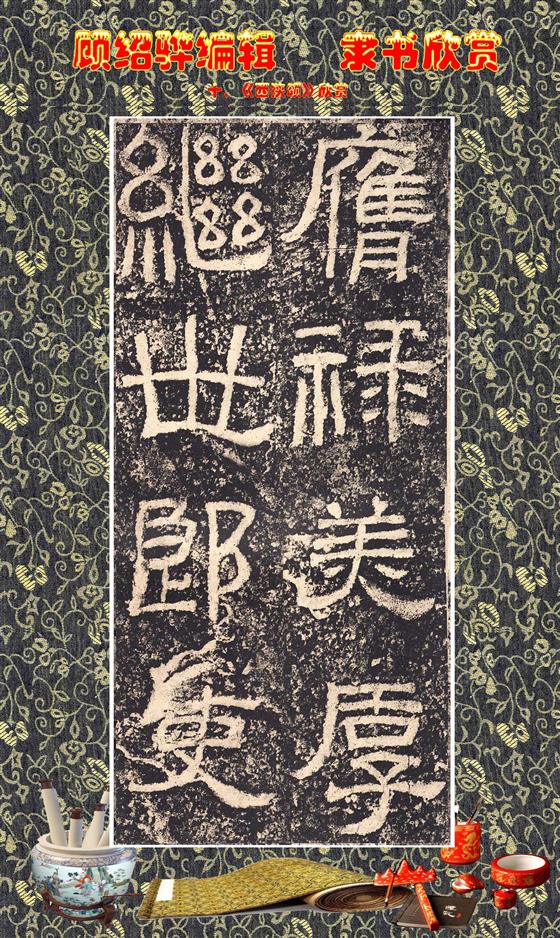 顾绍骅编辑 隶书欣赏
十、《西狭颂》欣赏
膺禄美厚
繼世郎吏